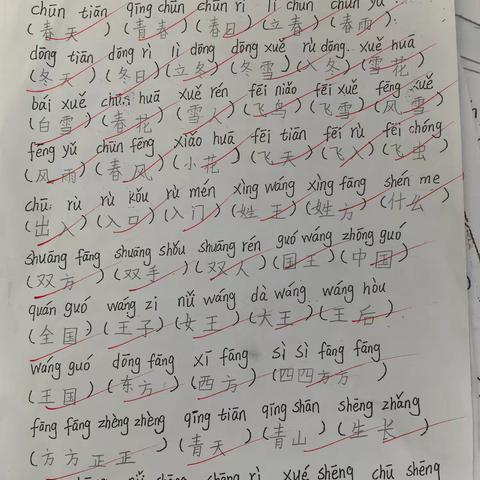 chūn tiān qīng chūn chūn rì lì chūn chūn yǔ
(春天)(青春)(春日)(立春)(春雨)
dōng tiān dōng rì lì dōng dōng xuě rù dōng xuě huā
(冬天)(冬日)(立冬)(冬雪)(入冬)(雪花)
bái xuě chūn huā xuě rén fēi niǎo fēi xuě fēng xuě
(白雪)(春花)(雪人)(飞鸟)(飞雪)(风雪)
fēng yǔ chūn fēng xiǎo huā fēi tiān fēi rù fēi chóng
(风雨)(春风)(小花)(飞天)(飞入)(飞虫)
chū rù rù kǒu rù mén xìng wáng xìng fāng shén me
(出入)(入口)(入门)(姓王)(姓方)(什么)
shuāng fāng shuāng shǒu shuāng rén guó wáng zhōng guó
(双方)(双手)(双人)(国王)(中国)
quán guó wáng zi nǚ wáng dà wáng wáng hòu
(全国)(王子)(女王)(大王)(王后)
wáng guó dōng fāng xī fāng sì sì fāng fāng
(王国)(东方)(西方)(四四方方)
fāng fāng zhèng zhèng qīng tiān qīng shān shēng zhǎng
(方方正正)(青天)(青山)(生长)
rì xué shēng chū shēng